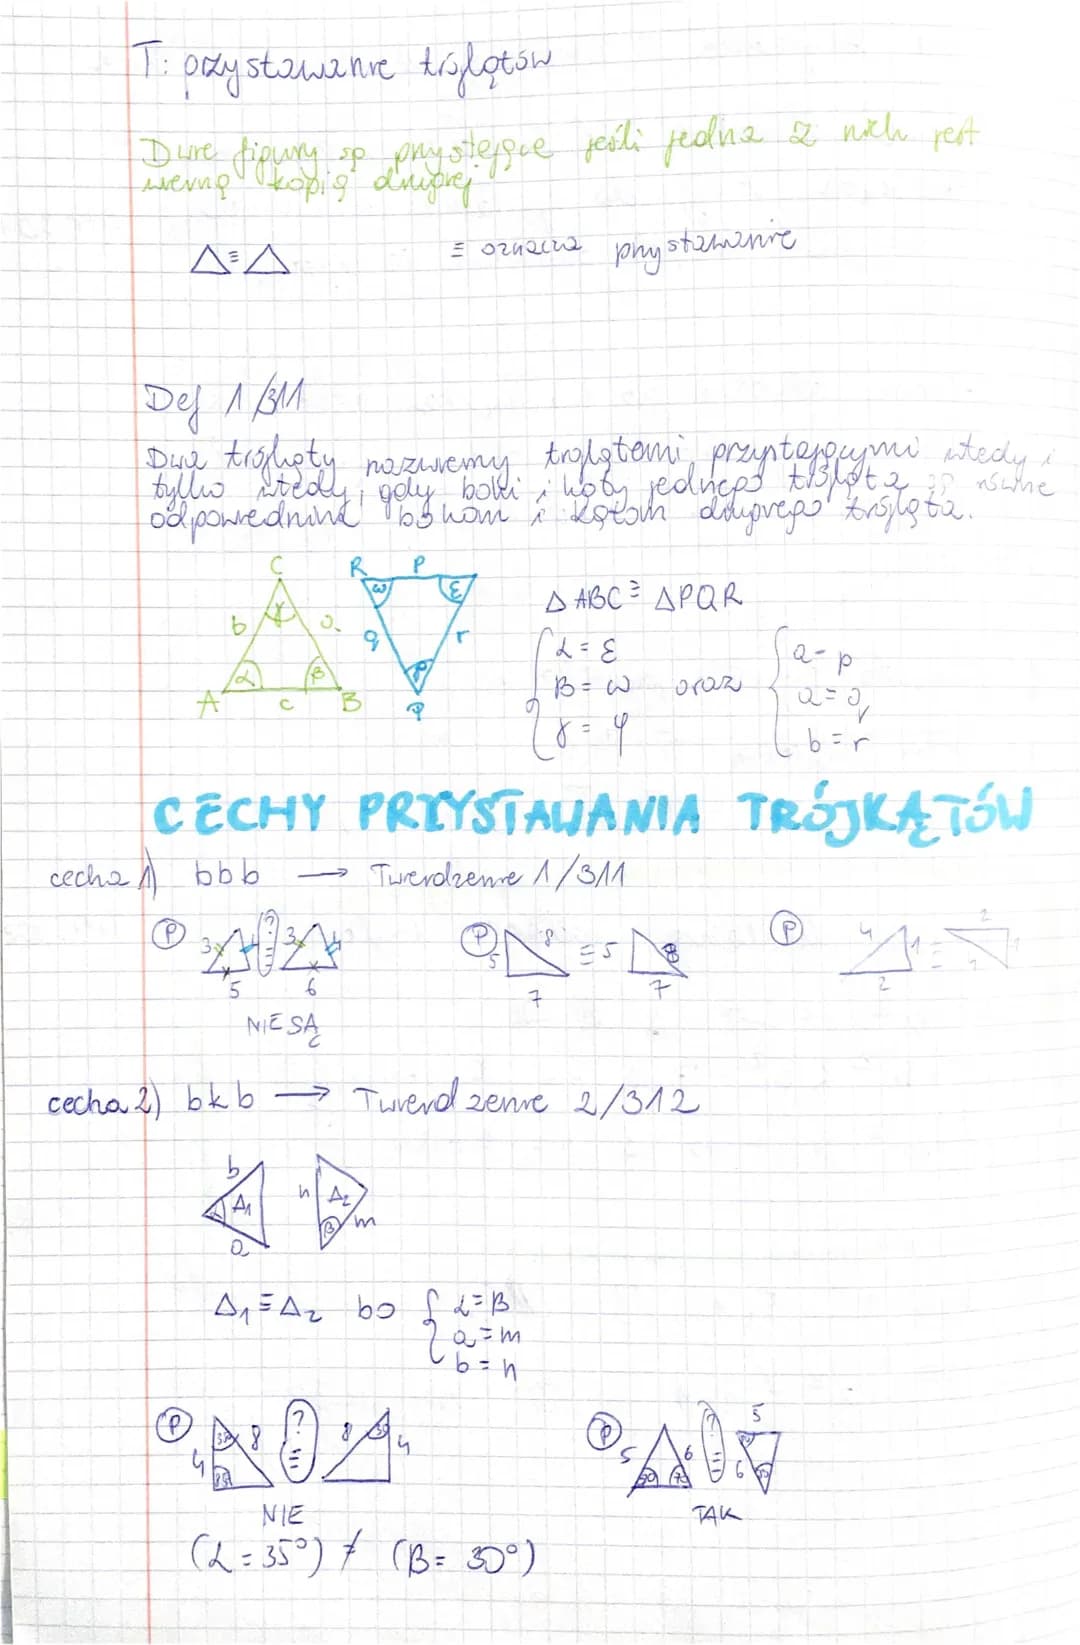 T: przystawanie trójkątów
Dwie figury są przystające jeśli jedna z nich jest
wierną kopią drugiej
△ ≡ △ ≡ oznacza przystawanie
Def 1/311
Dwa trójkąty nazwiemy trójkątami przystającymi wtedy i
tylko wtedy, gdy boki i kąty jednego trójkąta są równe
odpowiednim bokom i kątom drugiego trójkąta.
C R P
ω ε
b γ a q r
α β φ
A c B
△ABC ≡ △PQR
α = ε
β = ω oraz
γ = φ
a = p
a = q
b = r
CECHY PRZYSTAWANIA TRÓJKĄTÓW
cecha 1) bbb → Twierdzenie 1/311
P 3 4 ? ≡ 3 4 P 5 8 ≡ 5 8 P 4 1 ≡ 2 1
5 6 7 7 2
NIE SĄ
cecha 2) bkb → Twierdzenie 2/312
b n
α △1 △2
β m
a
△1 ≡ △2 bo α = β
a = m
b = n
P 4 8 ? ≡ 8 4 P 5 6 ? ≡ 5 6
NIE TAK
(α = 35°) ≠ (β = 30°)